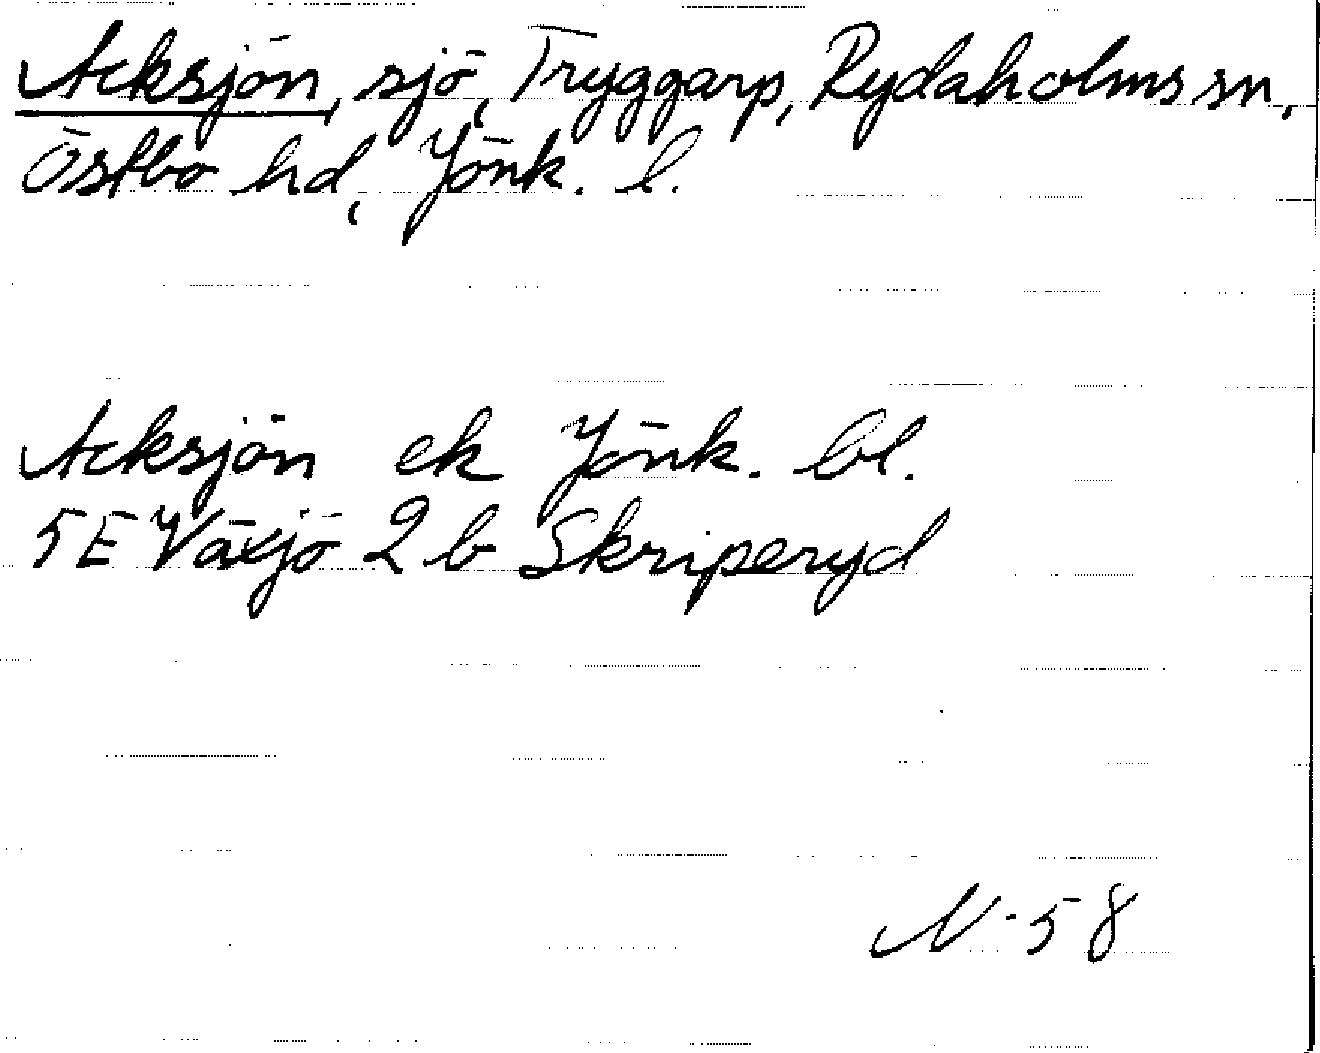 Acksjön, sjö, Tryggarp, Rydaholms sn,
Östbo hd, Jönk. l.
Acksjön ek Jönk. bl.
5E Växjö 2 b Skriperyd
N-58